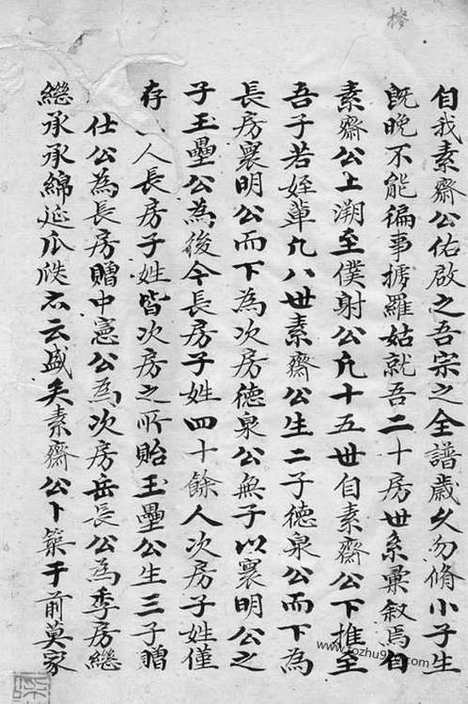 自我素齋公佑啟之吾宗之全譜歲久勿脩小子生
既晚不能徧事摭羅姑就吾二十房世系彙敘焉自
素齋公上溯至僕射公凡十五世自素齋公下推至
吾子若姪輩凡八世素齋公生二子德泉公而下為
長房襄明公而下為次房德泉公無子以襄明公之
子玉壘公為後今長房子姓四十餘人次房子姓僅
存 人長房子姓皆次房之所貽玉壘公生三子贈
仕公為長房贈中憲公為次房岳長公為季房繼
繼承承綿延瓜瓞不云盛矣素齋公卜築于前莫家